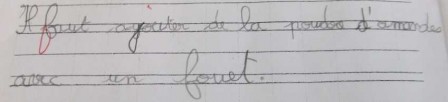 Il faut ajouter de la poudre d'amandes
avec un fouet.